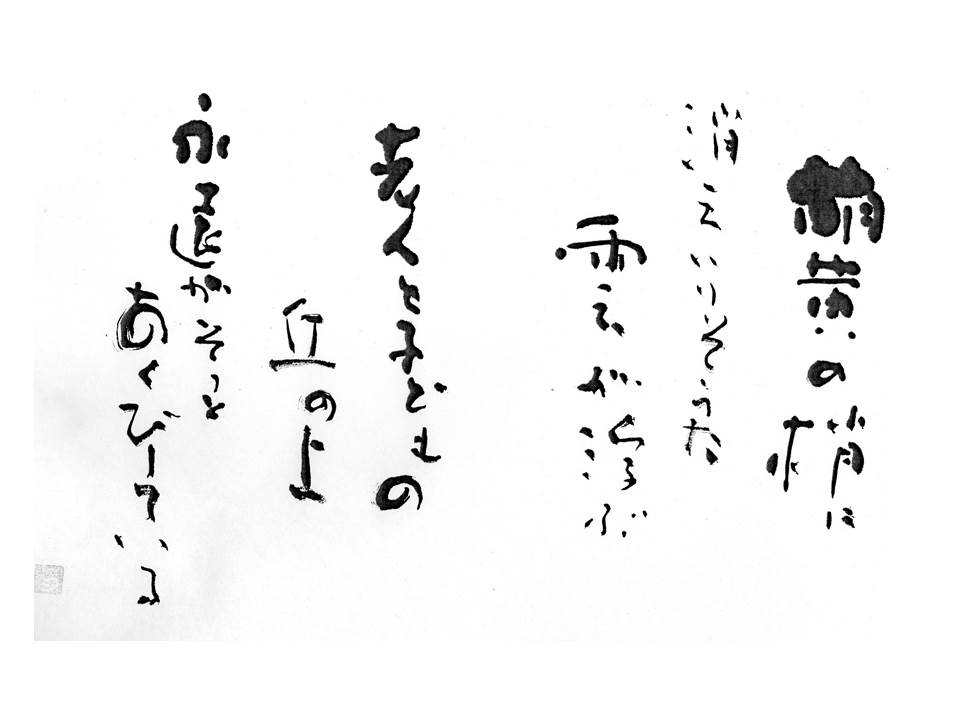 萌黄の梢に
消えいりそうな
雲が浮ぶ
老人と子どもの
丘の上
永遠がそっと
あくびしている